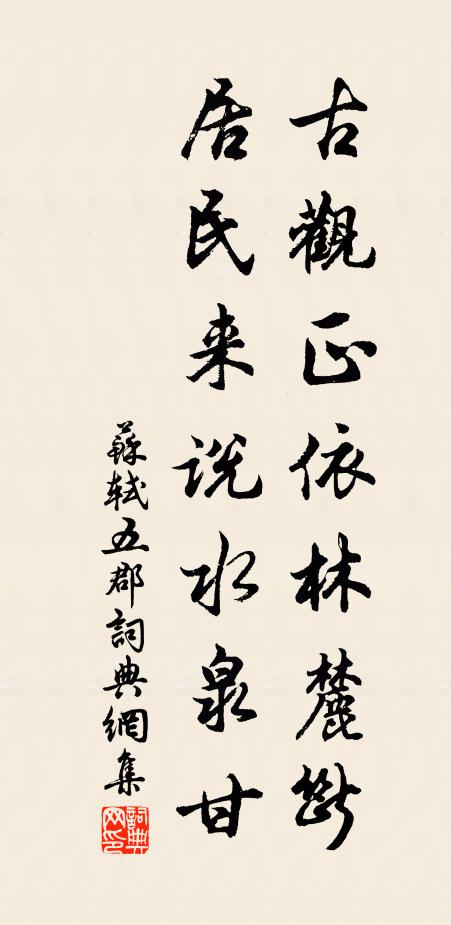 古觀正依林麓斷
居民来説水泉甘
蘇軾五郡詞典網集
詞典網印